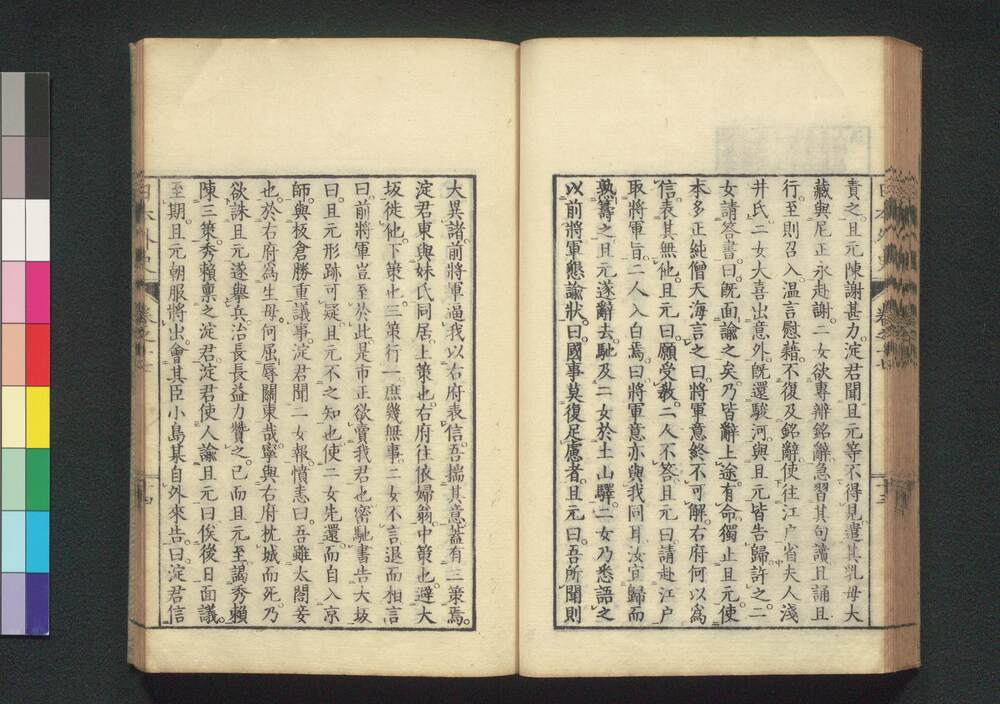 責之。且元陳謝甚力。淀君聞且元等不得見。遣其乳母大
藏與尼正永赴謝。二女欲專辨銘辭。急習其句讀。且誦且
行。至則召入。温言慰藉。不復及銘辭。使往江户省夫人淺
井氏。二女大喜出意外。既還駿河。與且元皆告歸。許之。二
女請答書。曰。既面諭之矣。乃皆辭上途。有命獨止且元。使
本多正純僧天海言之曰。將軍意終不可解。右府何以爲
信。表其無他。且元曰。願受教。二人不答。且元曰。請赴江户
取將軍旨。二人入白焉。曰。將軍意亦與我同耳。汝宜歸而
熟籌之。且元遂辭去。馳及二女於土山驛。二女乃悉語之
以前將軍懇諭狀。曰。國事莫復足慮者。且元曰。吾所聞則
大異諸。前將軍逼我以右府表信。吾揣其意。蓋有三策焉。
淀君東與妹氏同居。上策也。右府往依婦翁。中策也。避大
坂徙他。下策也。三策行一。庶幾無事。二女不言。退而相言
曰。前將軍豈至於此。是市正欲賣我君也。密馳書告大坂
曰。且元形跡可疑。且元不之知也。使二女先還。而自入京
師。與板倉勝重議事。淀君聞二女報。憤恚曰。吾雖太閤妾
也。於右府爲生母。何屈辱關東哉。寧與右府枕城而死。乃
欲誅且元。遂舉兵。治長長益力贊之。已而且元至。謁秀賴
陳三策。秀賴稟之淀君。淀君使人諭且元曰。俟後日面議。
至期。且元朝服將出。會其臣小島某自外來告曰。淀君信